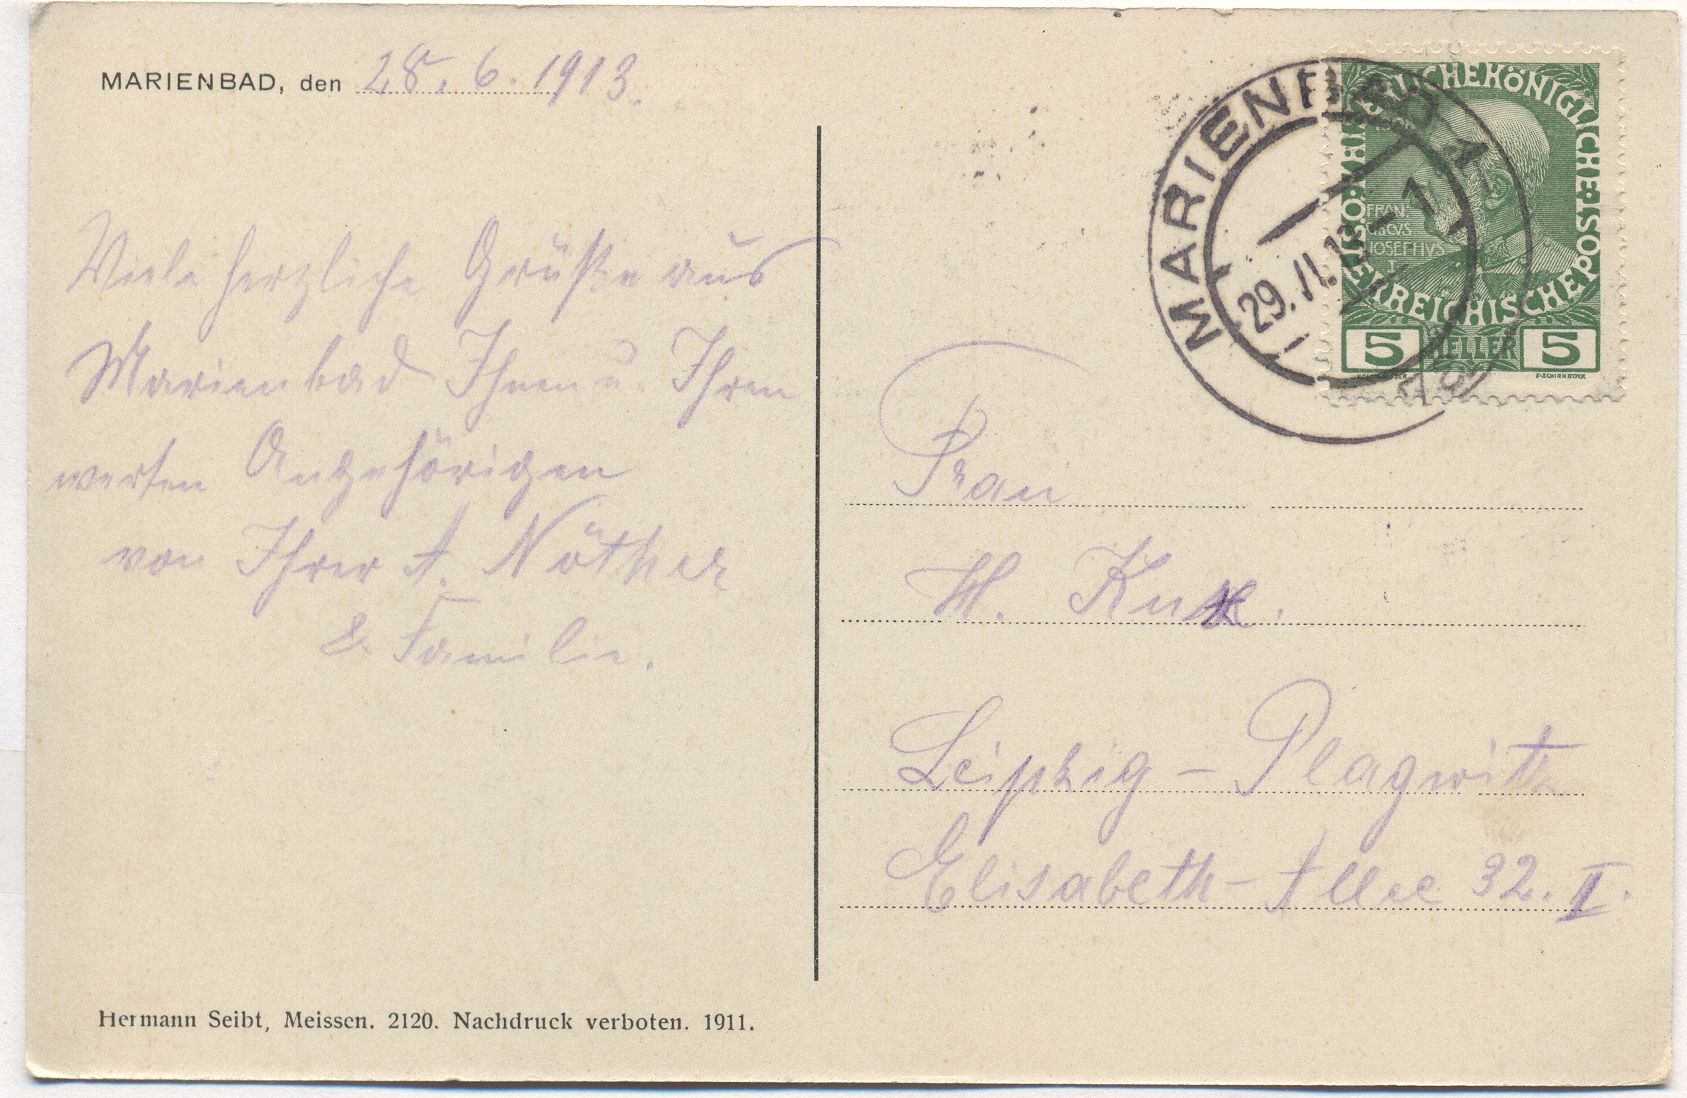 MARIENBAD, den 28. 6. 1913.
Viele herzliche Grüße aus
Marienbad Ihnen u. Ihren
werten Angehörigen
von Ihrer A. Nöther
& Familie.
Hermann Seibt, Meissen. 2120. Nachdruck verboten. 1911.
MARIENBAD 1
29. VI. 13 - 1
KAISERLICHE KÖNIGLICHE ÖSTERREICHISCHE POST
FRAN
CISCVS
IOSEPHVS
I
5 HELLER 5
Frau
H.
Leipzig - Plagwitz
Elisabeth - Allee 32. II.